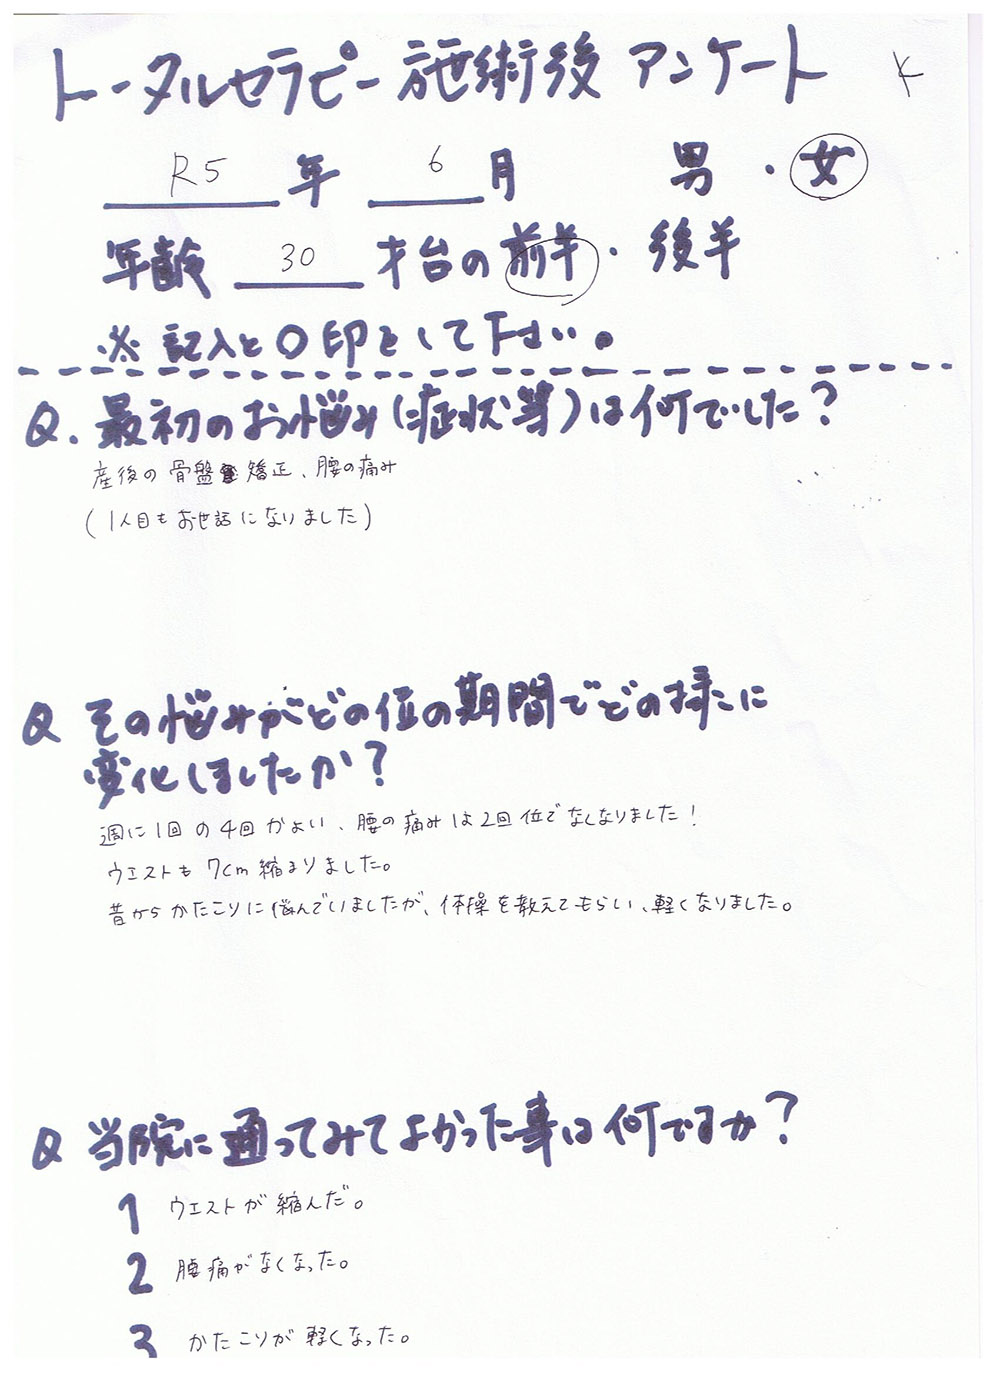 トータルセラピー施術後 アンケート
R5 年 6 月 男・女
年齢 30 才台の前半・後半
※ 記入と〇印をして下さい。
Q. 最初のお悩み(症状等)は何でした?
産後の骨盤矯正、腰の痛み
(1人目もお世話になりました)
Q その悩みがどの位の期間でどの様に
変化しましたか?
週に1回の4回かよい、腰の痛みは2回位でなしなりました!
ウエストも7cm縮まりました。
昔からかたこりに悩んでいましたが、体操を教えてもらい、軽くなりました。
Q 当院に通ってみてよかった事は何ですか?
1 ウエストが縮んだ。
2 腰痛がなくなった。
3 かたこりが軽くなった。